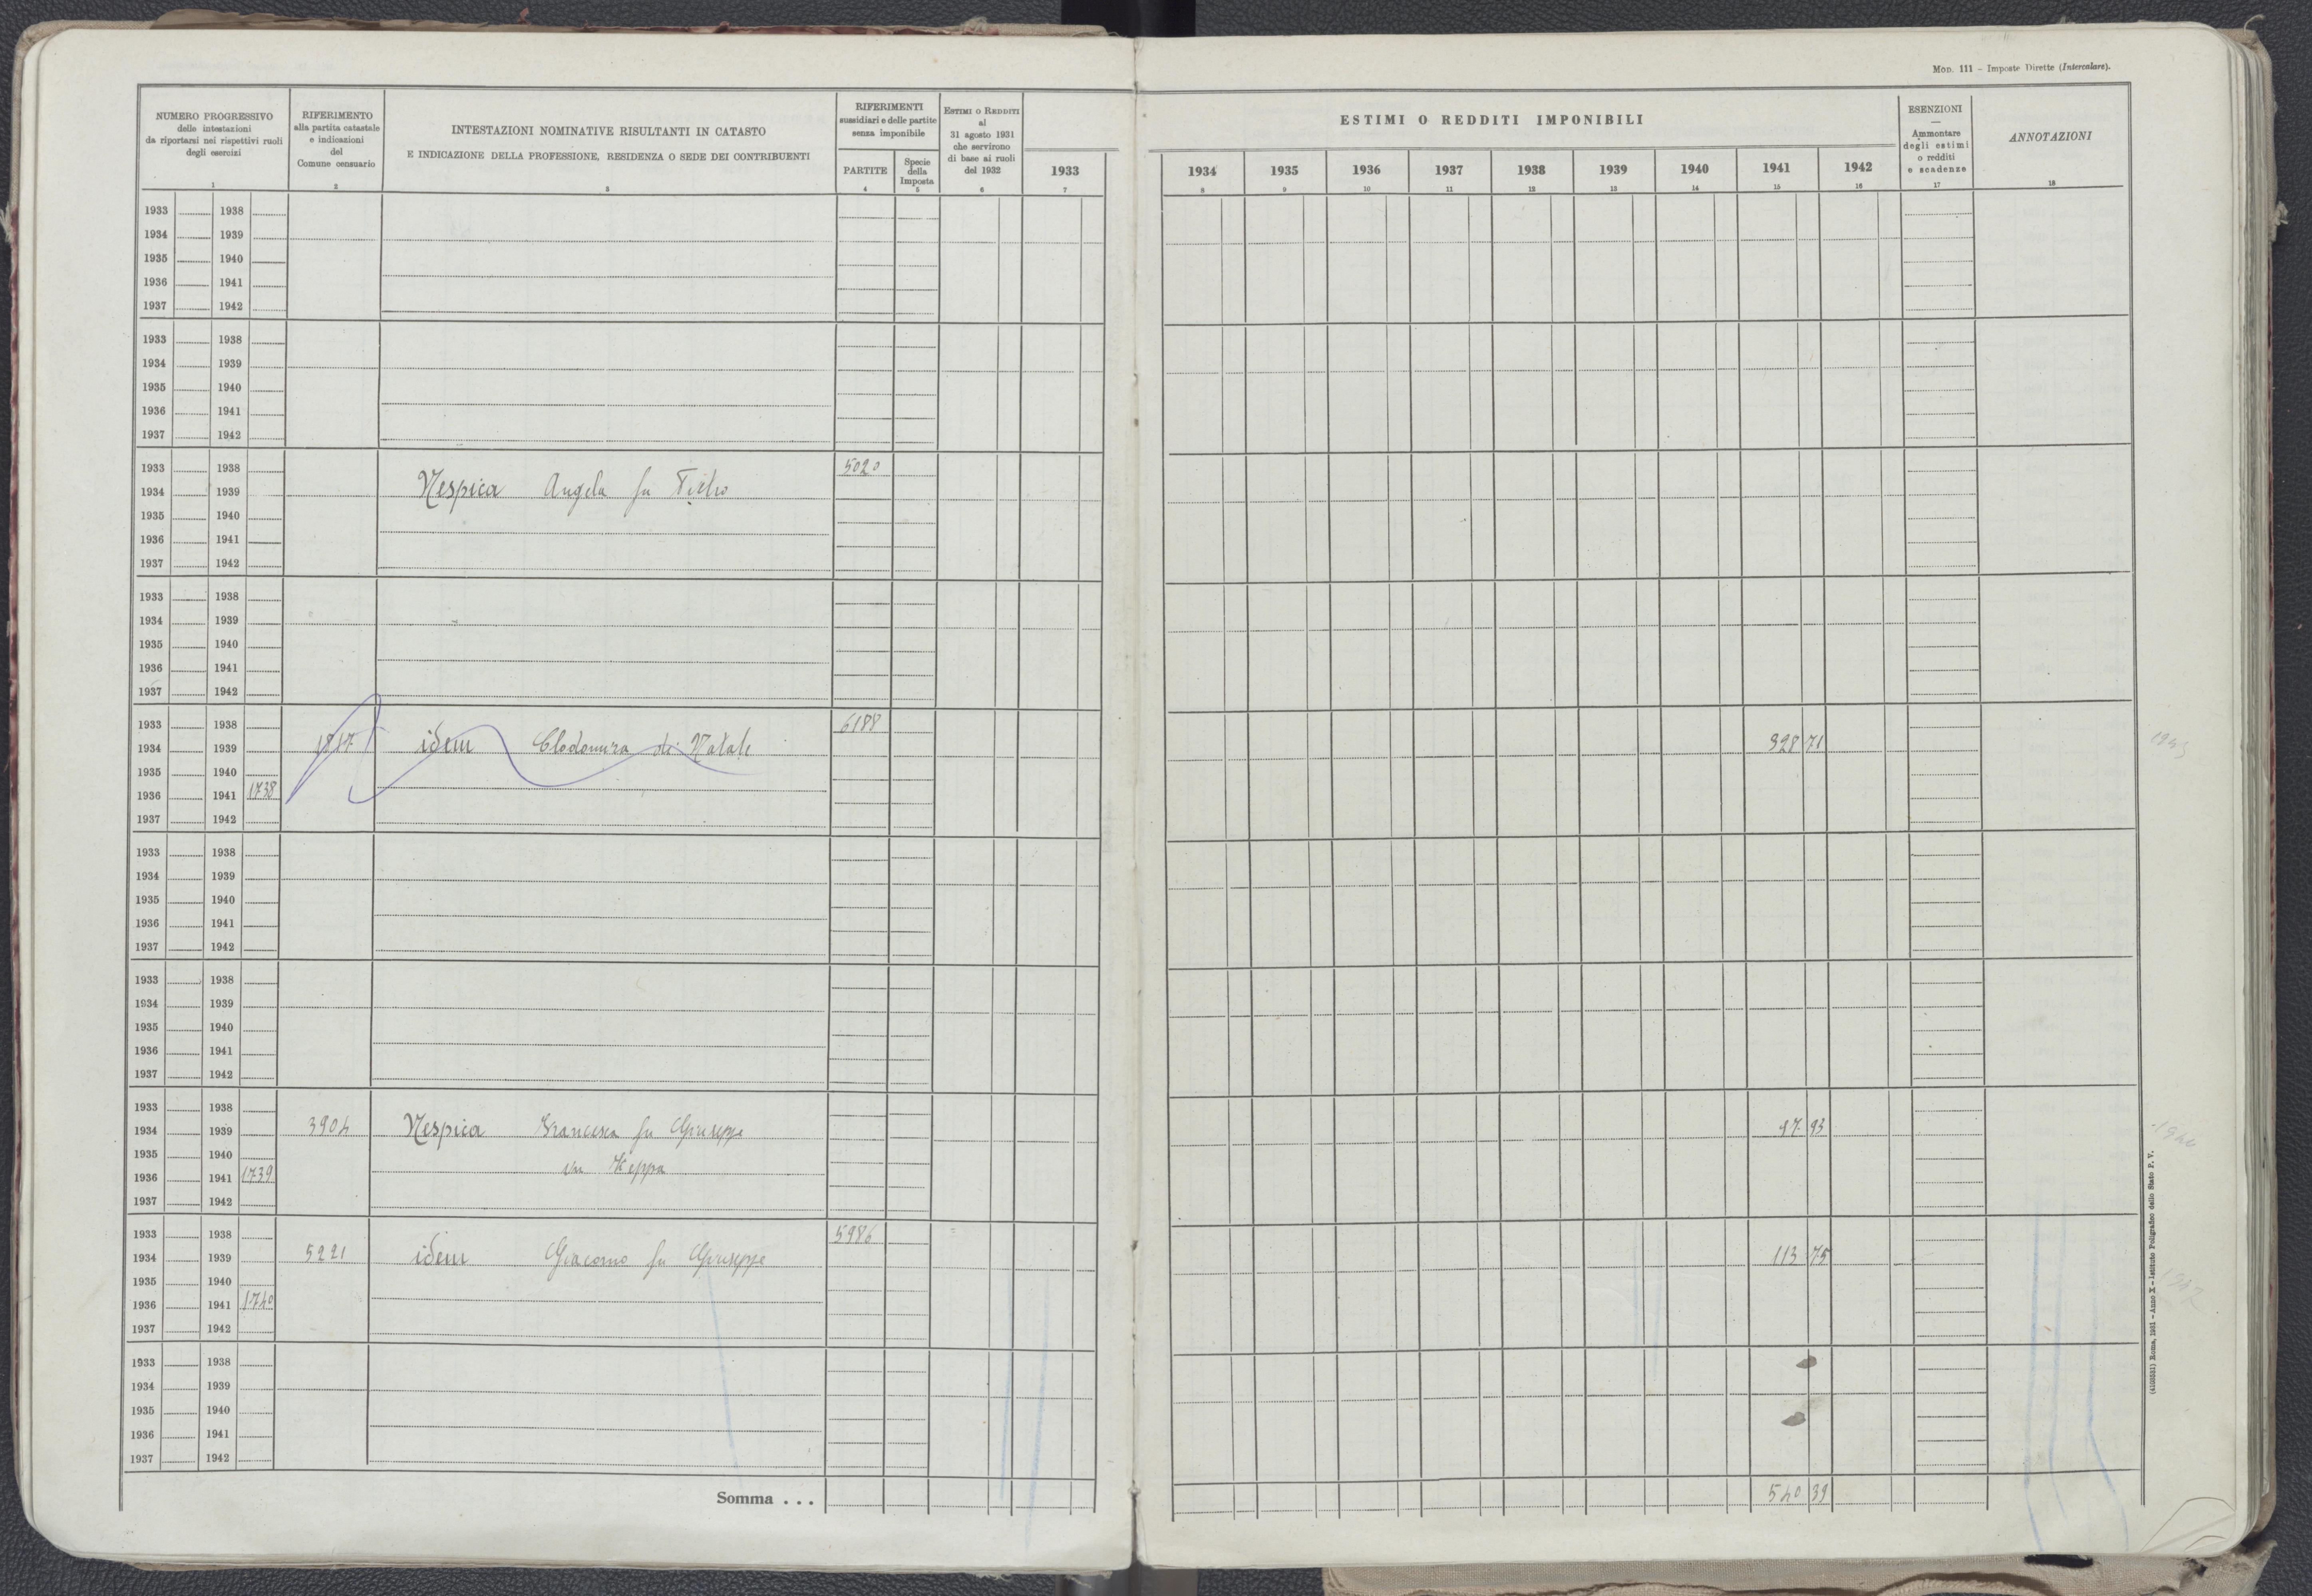 Mod. 111 - Imposte Dirette (Intercalare).
NUMERO PROGRESSIVO
delle intestazioni
da riportarsi nei rispettivi ruoli
degli esercizi
1
RIFERIMENTO
alla partita catastale
e indicazioni
del
Comune censuario
2
INTESTAZIONI NOMINATIVE RISULTANTI IN CATASTO
E INDICAZIONE DELLA PROFESSIONE, RESIDENZA O SEDE DEI CONTRIBUENTI
3
RIFERIMENTI
sussidiari e delle partite
senza imponibile
PARTITE
4
Specie
della
Imposta
5
ESTIMI O REDDITI
al
31 agosto 1931
che servirono
di base ai ruoli
del 1932
6
1933
7
ESTIMI O REDDITI IMPONIBILI
1934 1935 1936 1937 1938 1939 1940 1941 1942
8 9 10 11 12 13 14 15 16
ESENZIONI
—
Ammontare
degli estimi
o redditi
e scadenze
17
ANNOTAZIONI
18
1933 1938
1934 1939
1935 1940
1936 1941
1937 1942
1933 1938
1934 1939
1935 1940
1936 1941
1937 1942
1933 1938 5020
1934 1939 Nespica Angela fu Pietro
1935 1940
1936 1941
1937 1942
1933 1938
1934 1939
1935 1940
1936 1941
1937 1942
1933 1938 6188
1934 1939 idem Clodomira di Natale 328 71
1935 1940
1936 1941 1738
1937 1942
1933 1938
1934 1939
1935 1940
1936 1941
1937 1942
1933 1938
1934 1939
1935 1940
1936 1941
1937 1942
1933 1938
1934 1939 3904 Nespica Francesca fu Giuseppe 97 93
1935 1940
1936 1941 1739
1937 1942
1933 1938 5986
1934 1939 5221 idem Giacomo fu Giuseppe 113 75
1935 1940
1936 1941 1740
1937 1942
1933 1938
1934 1939
1935 1940
1936 1941
1937 1942
Somma . . . 540 39
(4100531) Roma, 1931 - Anno X - Istituto Poligrafico dello Stato P. V.